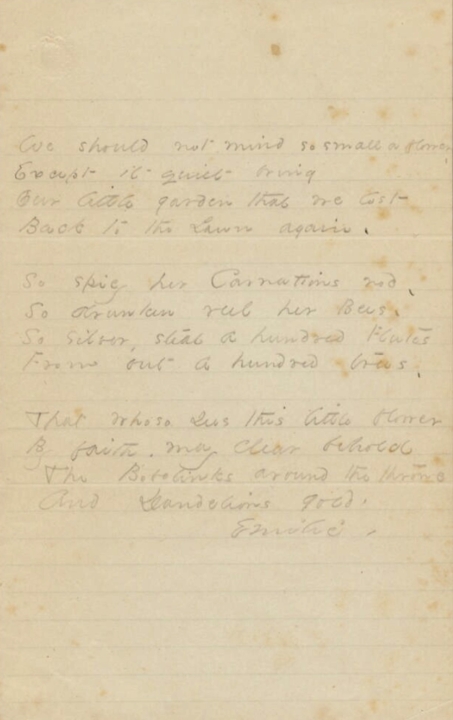 We should not mind so small a flower
Except it quiet bring
Our little garden that we lost
Back to the Lawn again.
So spicy her Carnations nod,
So drunken reel her Bees,
So silver, steal a hundred Flutes
From out a hundred trees,
That whoso sees this little flower
By faith, may clear behold
The Bobolinks around the throne
And Dandelions gold.
Emilie.